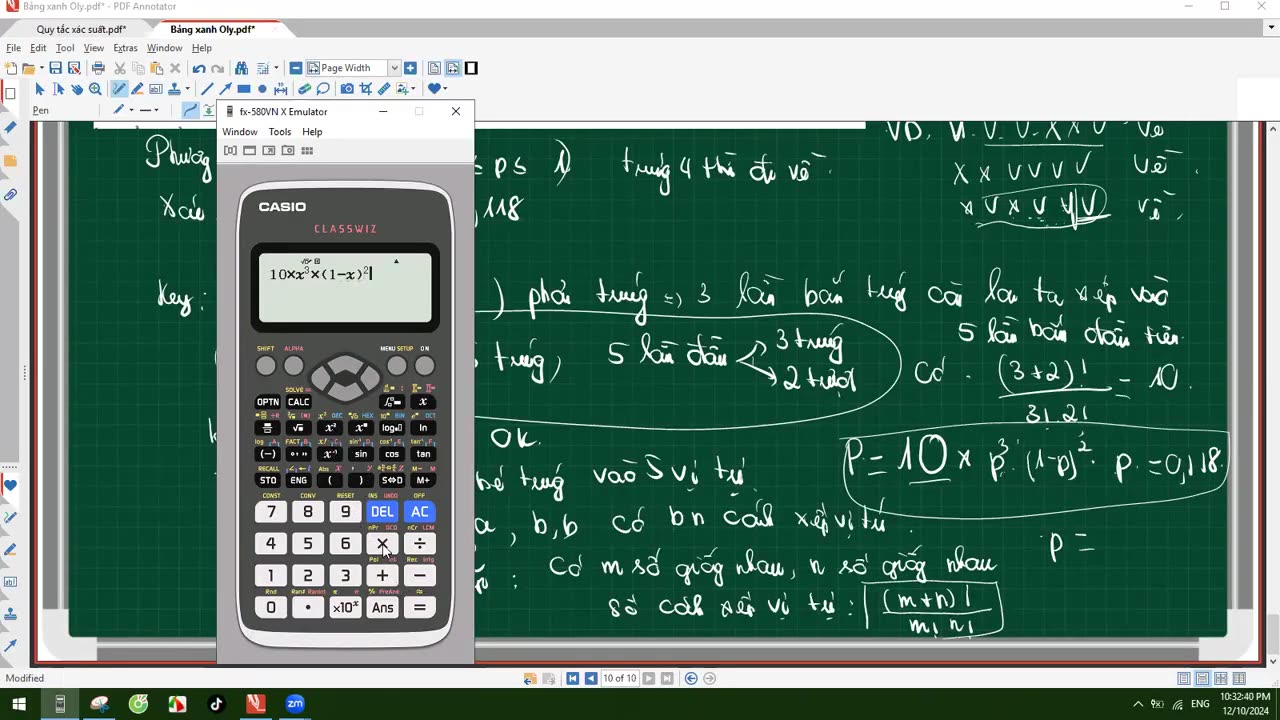 Bảng xanh Oly.pdf* - PDF Annotator
Quy tắc xác suất.pdf*
Bảng xanh Oly.pdf*
File Edit Tool View Extras Window Help
Page Width
Pen
fx-580VN X Emulator
Window Tools Help
CASIO
CLASSWIZ
10×x³×(1−x)²
SHIFT ALPHA MENU SETUP ON
SOLVE =
OPTN CALC x
x² DEC HEX BIN OCT
√ x² ln
log FACT x! sin⁻¹ cos⁻¹ tan⁻¹
(−) sin cos tan
RECALL Abs M− M
STO ENG ( ) S⇔D M+
CONST CONV RESET INS UNDO OFF
7 8 9 DEL AC
nPr GCD nCr LCM
4 5 6 × ÷
Pol Int Rec Intg
1 2 3 + −
Rnd Ran# RanInt π e % PreAns ≈
0 . ×10ˣ Ans =
VD. V. V. V. X X V Về
Phương ≤ p ≤ 1) trúng 4 thì đi về
X X V V V V Về
Xác ,118
X V X V V V về
Key: ) phải trúng => 3 lần bắn trúng còn lại ta xếp vào
5 lần bắn đầu tiên
trúng) 5 lần đầu 3 trúng
2 trượt
Có (3+2)! / 3! 2! = 10.
OK.
P = 10 × p³. (1-p)². p = 0,118
trúng vào 5 vị trí
a, b, b có bn cách xếp vị trí
p =
: có m số giống nhau, n số giống nhau
số cách xếp vị trí: (m+n)! / m! n!
10 of 10
Modified
ENG
10:32:40 PM
12/10/2024